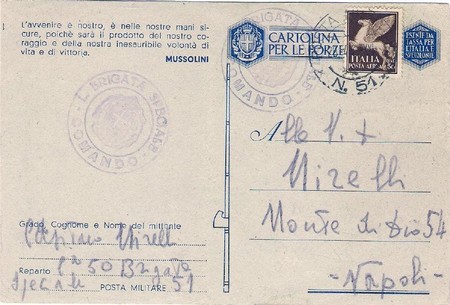 L'avvenire è nostro, è nelle nostre mani si-
cure, poichè sarà il prodotto del nostro co-
raggio e della nostra inesauribile volontà di
vita e di vittoria.
MUSSOLINI
CARTOLINA
PER LE FORZE
ITALIA
POSTA AEREA
ESENTE DA
TASSA PER
L'ITALIA E
N. 51
BRIGATA SPECIALE
COMANDO
BRIGATA SPECIALE
COMANDO
Alla
Mirelli
Monte di Dio 54
-Napoli-
Grado, Cognome e Nome del mittente
Capitano Mirelli
Reparto 50 Brigata
Speciale POSTA MILITARE 51